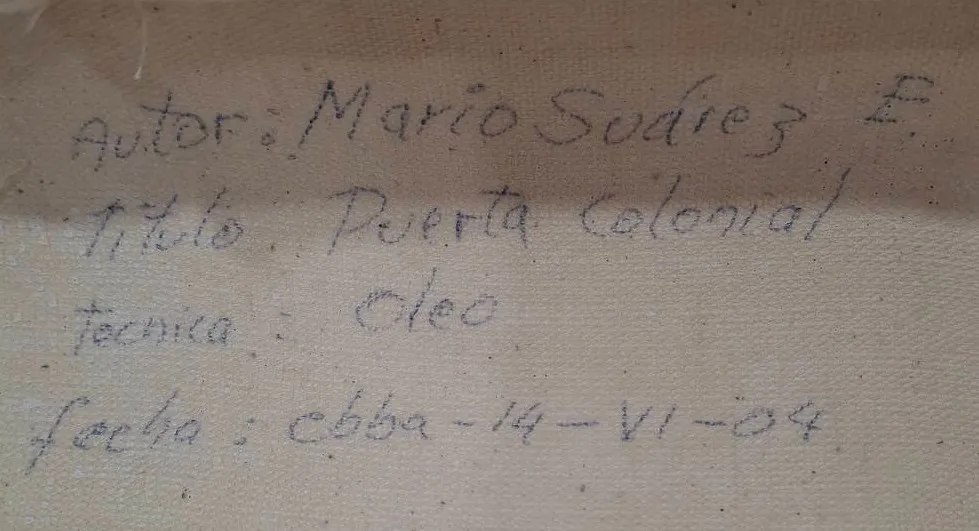 Autor: Mario Suárez E.
Titulo: Puerta Colonial
Tecnica: Oleo
fecha: cbba-14-VI-04